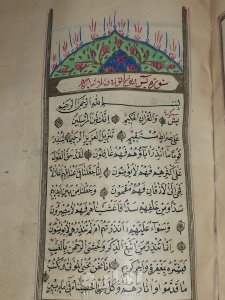 سورة يس
بسم الله الرحمن الرحيم
يس والقرآن الحكيم انك لمن المرسلين
على صراط مستقيم تنزيل العزيز الرحيم لتنذر
قوما ما انذر اباؤهم فهم غافلون لقد حق القول
على اكثرهم فهم لا يؤمنون انا جعلنا في اعناقهم اغلالا
فهي الى الاذقان فهم مقمحون وجعلنا من بين ايديهم
سدا ومن خلفهم سدا فاغشيناهم فهم لا يبصرون
وسواء عليهم ءانذرتهم ام لم تنذرهم لا يؤمنون
انما تنذر من اتبع الذكر وخشي الرحمن بالغيب
فبشره بمغفرة واجر كريم انا نحن نحيي الموتى ونكتب
ما قدموا وآثارهم وكل شيء احصيناه في